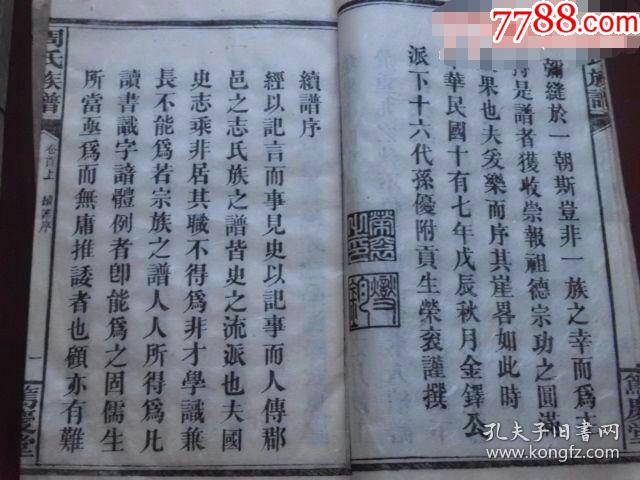 7788.com
氏族譜
彌縫於一朝斯豈非一族之幸而爲主
序是譜者獲收崇報祖德宗功之圓滿
果也夫爰樂而序其崖畧如此時
中華民國十有七年戊辰秋月金鐸公
派下十六代孫優附貢生榮袞謹撰
篤慶堂
周氏族譜
卷首上
續譜序
一
篤慶堂
續譜序
經以記言而事見史以記事而人傳郡
邑之志氏族之譜皆史之流派也夫國
史志乘非居其職不得爲非才學識兼
長不能爲若宗族之譜人人所得爲凡
讀書識字諳體例者卽能爲之固儒生
所當亟爲而無庸推諉者也顧亦有難
孔夫子旧书网
book.kongfz.com